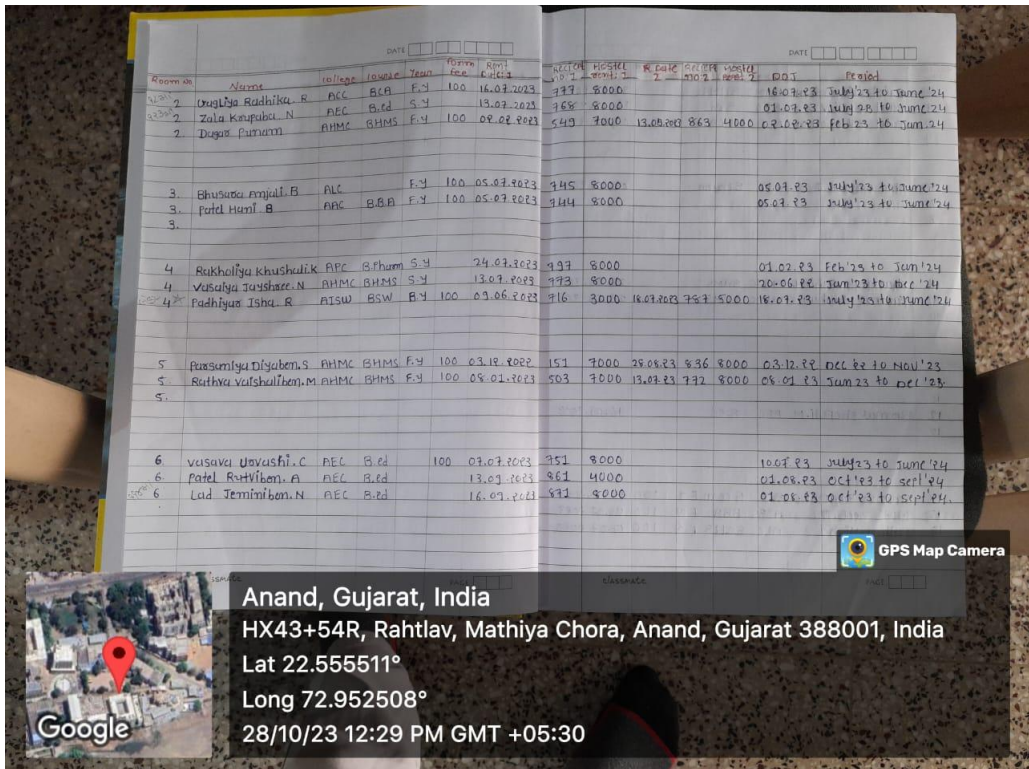 DATE
DATE
Room No Name College Course Year Form Fee Rent Date:1 Reciept no:1 Hostel Rent:1 R.Date 2 Reciept no:2 Hostel Rent 2 DOJ Period
2 Radhika. R ACC BCA F.Y 100 16.07.2023 777 8000 16.07.23 July'23 to June'24
2 Zala Krupaba N AEC B.ed S.Y 13.07.2023 768 8000 01.07.23 July 23 to June 24
2. Punam AHMC BHMS F.Y 100 02.02.2023 549 7000 863 4000 02.02.23 Feb 23 to Jan.24
3. Bhusara Anjali.B ALC F.Y 100 05.07.2023 745 8000 05.07.23 July'23 to June'24
3. Patel Hani B AAC B.B.A F.Y 100 05.07.2023 744 8000 05.07.23 July'23 to June'24
3.
4 Rakholiya Khushali.K APC B.Pharm S.Y 24.07.2023 797 8000 01.02.23 Feb'23 to Jan'24
4 Vasaiya Jayshree.N AHMC BHMS S.Y 13.07.2023 773 8000 20.06.22 Jan'23 to Dec'24
4 Padhiyar Isha. R AISW BSW 100 09.06.2023 716 3000 18.07.2023 787 5000 18.07.23 July'23 to June'24
5 Parsumiya Diyaben.S AHMC BHMS F.Y 100 03.12.2022 151 7000 28.08.23 836 8000 03.12.22 Dec 22 to Nov'23
5. Rathva Vaishaliben.M AHMC BHMS F.Y 100 08.01.2023 503 7000 13.07.23 772 8000 08.01.23 Jan 23 to Dec'23
5.
6. Vasava Urvashi.C AEC B.ed 100 07.07.2023 751 8000 July23 to June'24
6. Patel Rutviben.A AEC B.ed 13.09.2023 861 4000 01.08.23 Oct'23 to Sept'24
6 Lad Jeminiben.N AEC B.ed 871 8000 01.08.23 Oct'23 to Sept'24.
classmate PAGE
classmate PAGE
GPS Map Camera
Anand, Gujarat, India
HX43+54R, Rahtlav, Mathiya Chora, Anand, Gujarat 388001, India
Lat 22.555511°
Long 72.952508°
28/10/23 12:29 PM GMT +05:30
Google